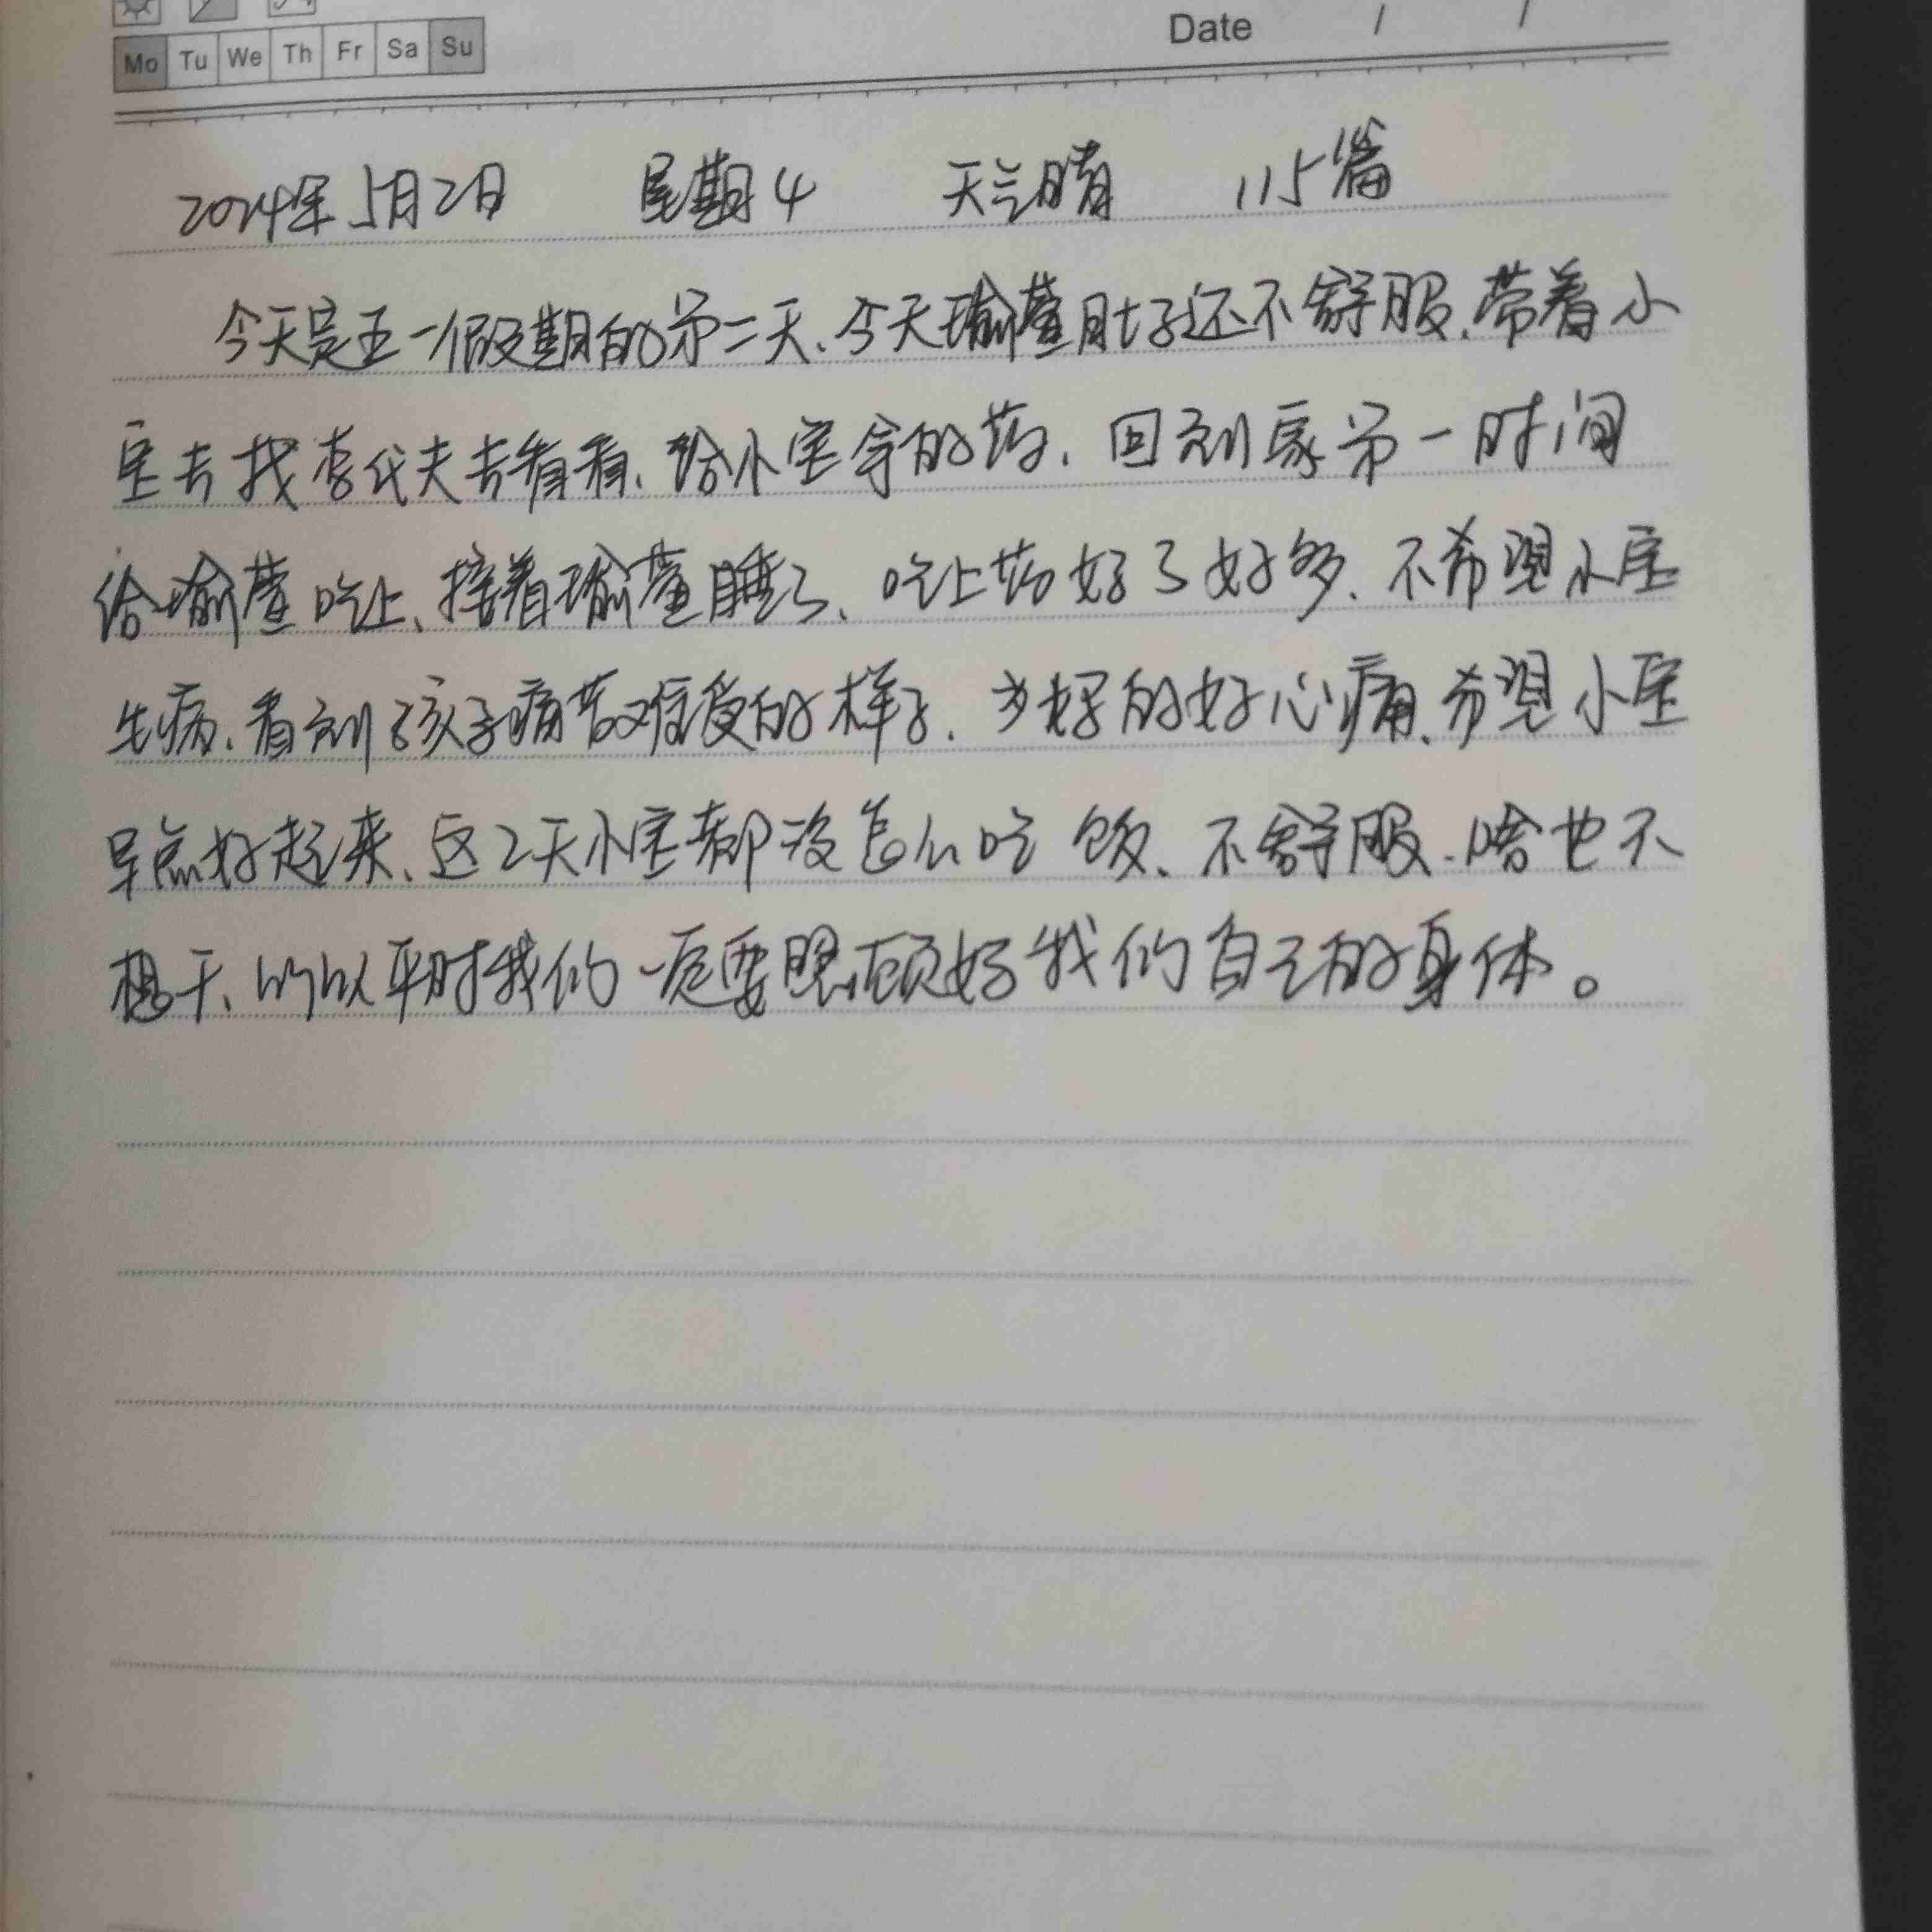 Mo Tu We Th Fr Sa Su
Date / /
2024年5月2日 星期4 天气晴 115篇
今天是五一假期的第二天、今天瑜萱肚子还不舒服、带着小
宝去找李代夫去看看、给小宝拿的药、回到家第一时间
给瑜萱吃上、接着瑜萱睡了、吃上药好了好多、不希望小宝
生病、看到孩子痛苦难受的样子、妈的好心痛、希望小宝
早点好起来、这2天小宝都没怎么吃饭、不舒服、啥也不
想干、所以平时我们一定要照顾好我们自己的身体。